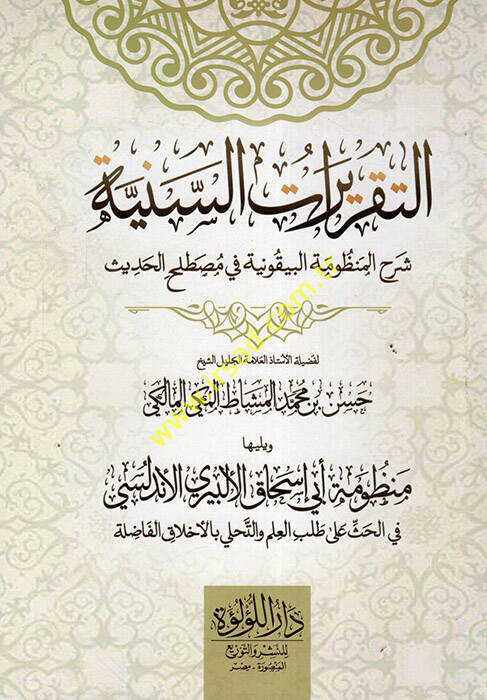 التقريرات السَّنيَّة
شرح المنظومة البيقونية في مصطلح الحديث
لفضيلة الأستاذ العلامة الجليل الشيخ
حسن بن محمد المشاط المكي المالكي
ويليها
منظومة أبي إسحاق الألبيري الأندلسي
في الحثّ على طلب العلم والتّحلي بالأخلاق الفاضلة
دار اللؤلؤة
للنشر والتوزيع
المنصورة - مصر
www.irsad.com.tr